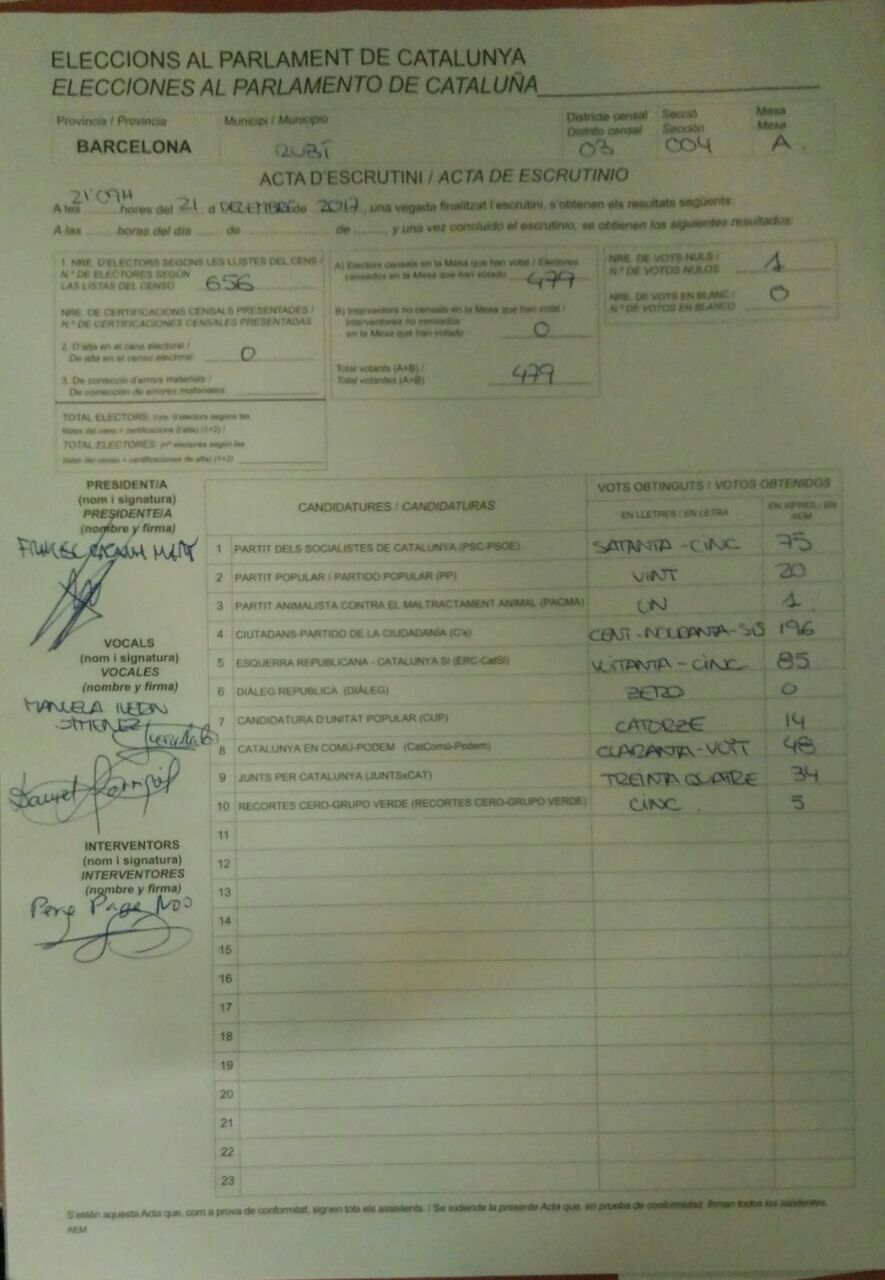 ELECCIONS AL PARLAMENT DE CATALUNYA
ELECCIONES AL PARLAMENTO DE CATALUÑA
Província / Provincia
Municipi / Municipio
Districte censal
Distrito censal
Secció
Sección
Mesa
Mesa
BARCELONA
RUBÍ
03
004
A
ACTA D'ESCRUTINI / ACTA DE ESCRUTINIO
21'09H
A les hores del 21 d DEZEMBRE de 2017, una vegada finalitzat l'escrutini, s'obtenen els resultats següents:
A las hores del día de de , y una vez concluido el escrutinio, se obtienen los siguientes resultados:
1 NRE. D'ELECTORS SEGONS LES LLISTES DEL CENS /
N.º DE ELECTORES SEGÚN
LAS LISTAS DEL CENSO 656
NRE. DE CERTIFICACIONS CENSALS PRESENTADES /
N.º DE CERTIFICACIONES CENSALES PRESENTADAS
2. D'alta en el cens electoral /
De alta en el censo electoral: 0
3. De correcció d'errors materials /
De corrección de errores materiales:
TOTAL ELECTORS: (nre. d'electors segons les
llistes del cens + certificacions d'alta) (1+2) /
TOTAL ELECTORES: (nº electores según las
listas del censo + certificaciones de alta) (1+2)
A) Electors censats en la Mesa que han votat / Electores
censados en la Mesa que han votado 479
B) Interventors no censats en la Mesa que han votat /
Interventores no censados
en la Mesa que han votado 0
Total votants (A+B) /
Total votantes (A+B) 479
NRE. DE VOTS NULS /
N.º DE VOTOS NULOS 1
NRE. DE VOTS EN BLANC /
N.º DE VOTOS EN BLANCO 0
PRESIDENT/A
(nom i signatura)
PRESIDENTE/A
(nombre y firma)
VOCALS
(nom i signatura)
VOCALES
(nombre y firma)
MANUELA
JIMENEZ
INTERVENTORS
(nom i signatura)
INTERVENTORES
(nombre y firma)
CANDIDATURES / CANDIDATURAS
VOTS OBTINGUTS / VOTOS OBTENIDOS
EN LLETRES / EN LETRA
EN XIFRES / EN NÚM
1 PARTIT DELS SOCIALISTES DE CATALUNYA (PSC-PSOE) SATANTA-CINC 75
2 PARTIT POPULAR / PARTIDO POPULAR (PP) VINT 20
3 PARTIT ANIMALISTA CONTRA EL MALTRACTAMENT ANIMAL (PACMA) UN 1
4 CIUTADANS-PARTIDO DE LA CIUDADANÍA (C's) CENT-NORANTA-SIS 196
5 ESQUERRA REPUBLICANA - CATALUNYA SÍ (ERC-CatSí) VUITANTA-CINC 85
6 DIÀLEG REPUBLICÀ (DIÀLEG) ZERO 0
7 CANDIDATURA D'UNITAT POPULAR (CUP) CATORZE 14
8 CATALUNYA EN COMÚ-PODEM (CatComú-Podem) QUARANTA-VUIT 48
9 JUNTS PER CATALUNYA (JUNTSxCAT) TREINTA QUATRE 34
10 RECORTES CERO-GRUPO VERDE (RECORTES CERO-GRUPO VERDE) CINC 5
11
12
13
14
15
16
17
18
19
20
21
22
23
S'estén aquesta Acta que, com a prova de conformitat, signen tots els assistents. / Se extiende la presente Acta que, en prueba de conformidad, firman todos los asistentes.
AEM